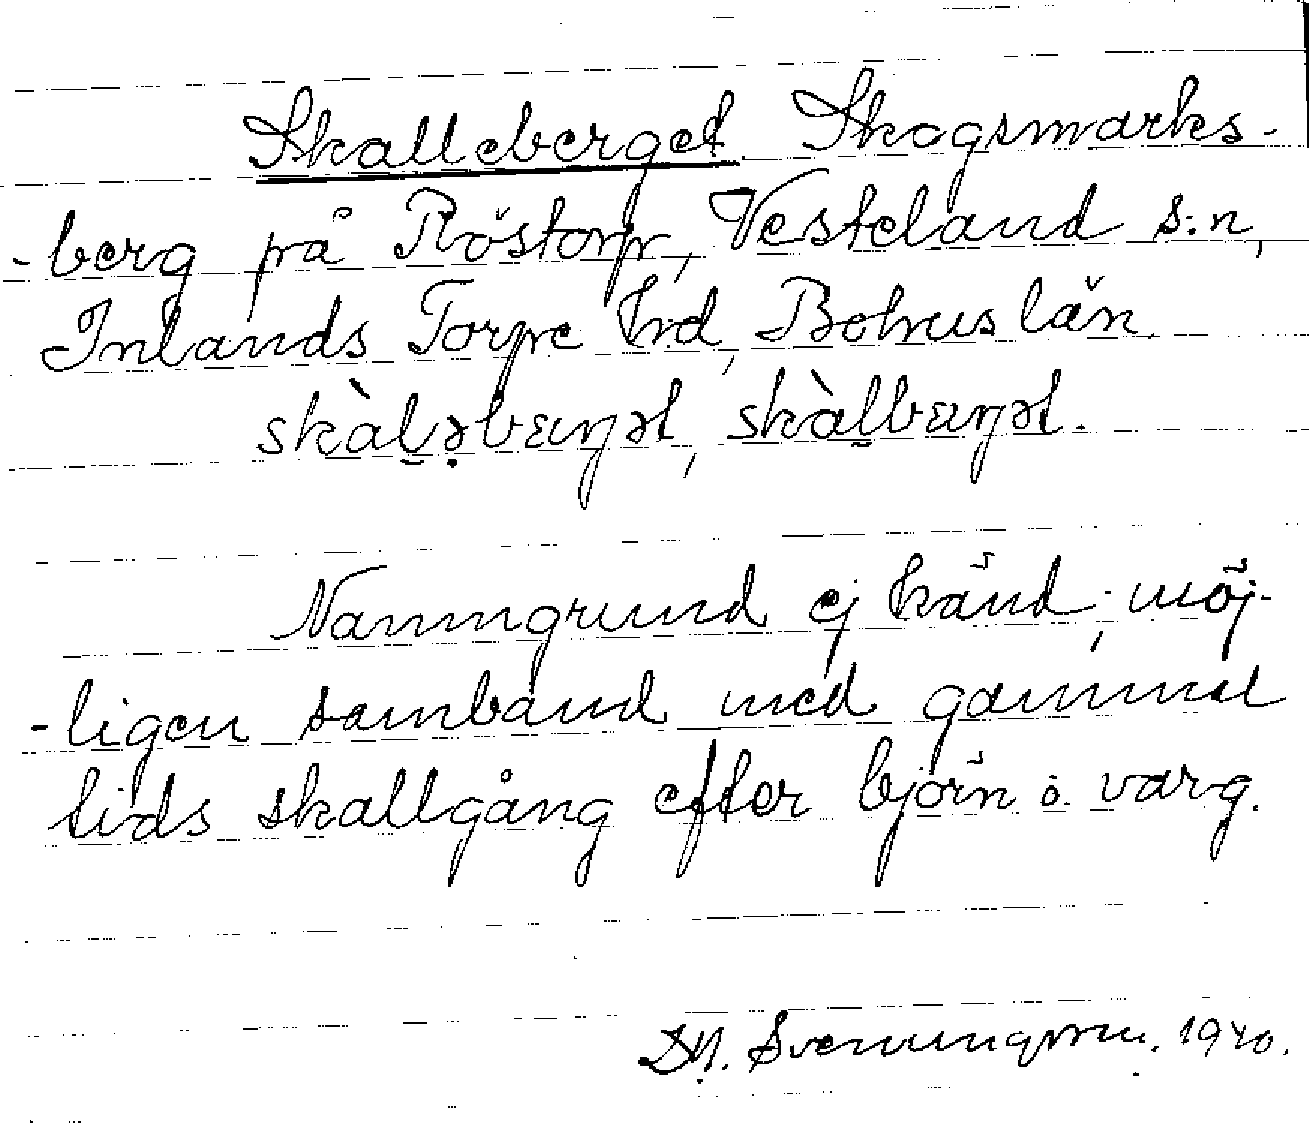 Skalleberget Skogsmarks-
-berg på Röstorp, Vesteland s:n,
Inlands Torpe hd, Bohuslän.
skàl̯ə̣bæŋət, skàl̯bæŋət.
Namngrund ej känd; möj-
-ligen samband med gammal
tids skallgång efter björn o. varg.
Svenungsson. 1940.